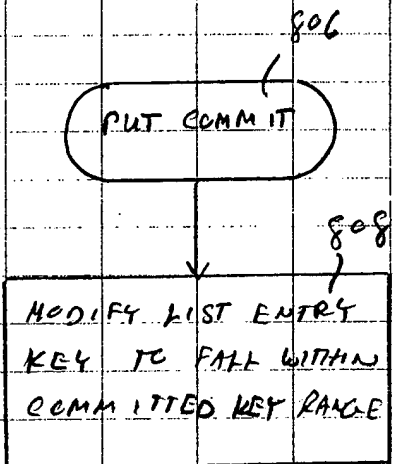 806
PUT COMMIT
808
MODIFY LIST ENTRY
KEY TO FALL WITHIN
COMMITTED KEY RANGE